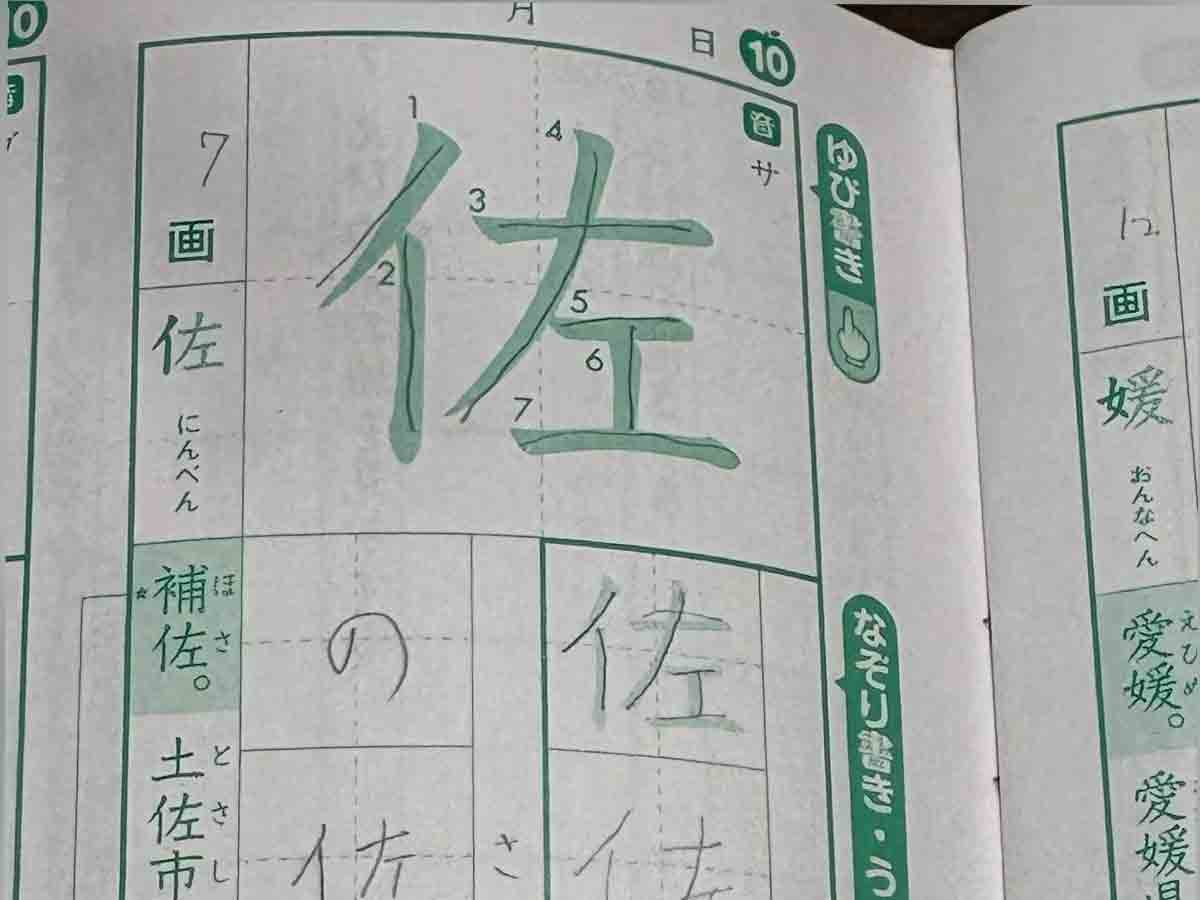 月
日
10
音
サ
ゆび書き
1
2
3
4
5
6
7
7
画
佐
にんべん
補佐。
ほさ
土佐市
とさし
なぞり書き・う
佐
佐
さ
の
佐
0
音
12
画
媛
おんなへん
愛媛。
えひめ
愛媛県